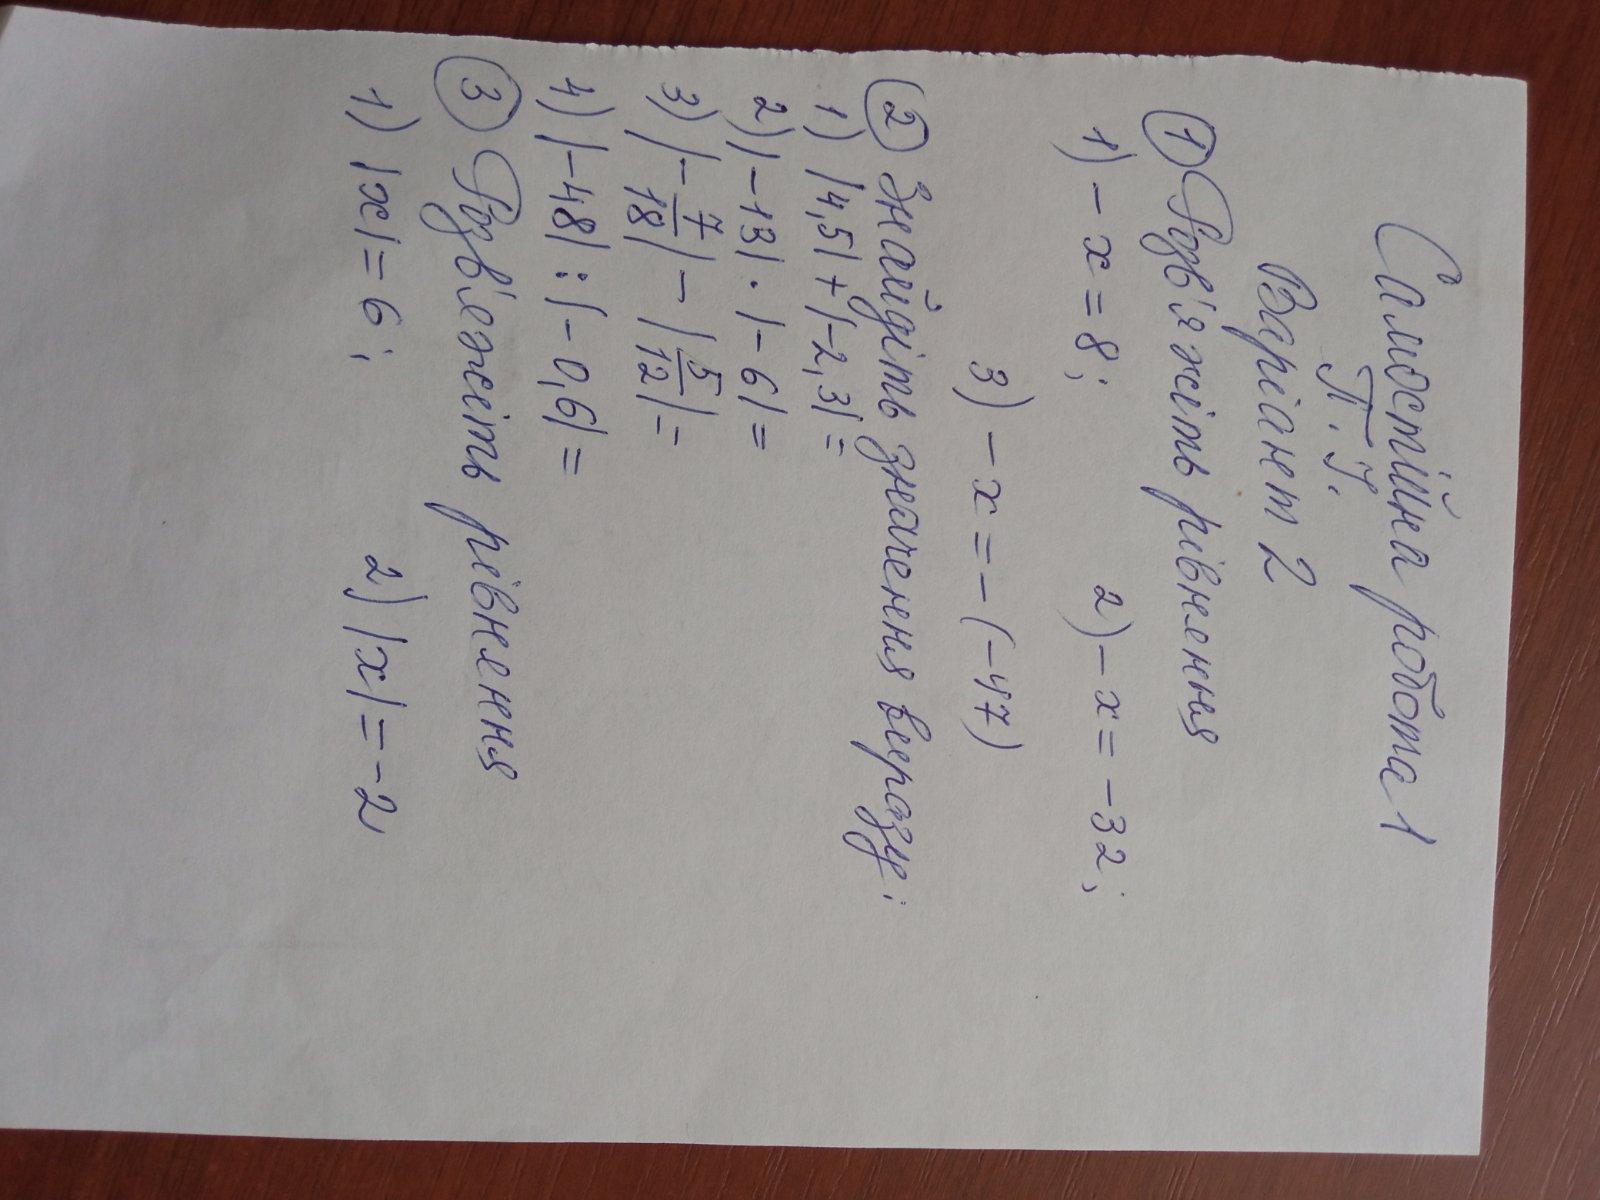 Самостійна робота 1
П. І.
Варіант 2
① Розв'яжіть рівнення
1) - x = 8; 2) - x = -32;
3) - x = - (-47)
② Знайдіть значення виразу:
1) |4,5| + |-2,3| =
2) |-13| · |-6| =
3) |-7/18| - |5/12| =
4) |-4,8| : |-0,6| =
③ Розв'яжіть рівнення
1) |x| = 6; 2) |x| = -2